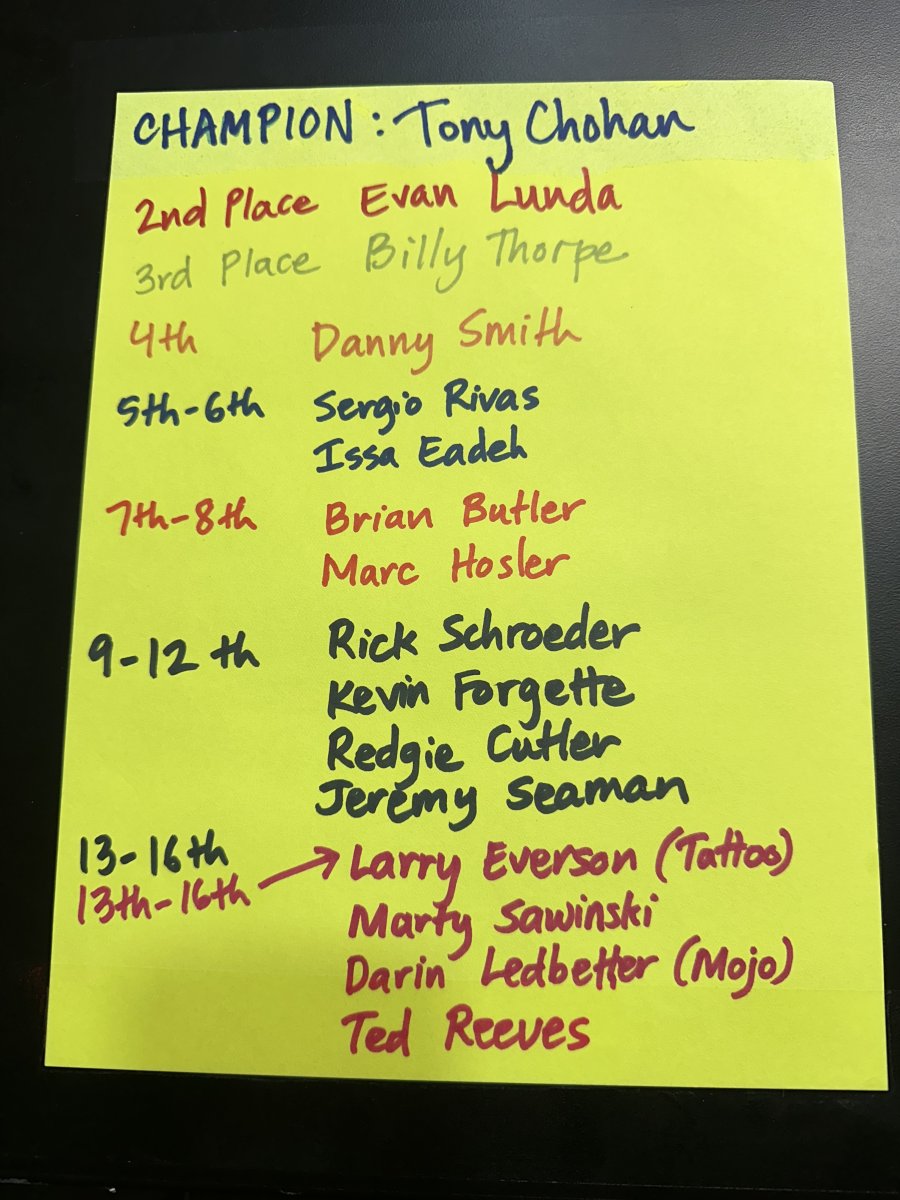 CHAMPION: Tony Chohan
2nd Place Evan Lunda
3rd Place Billy Thorpe
4th Danny Smith
5th-6th Sergio Rivas
Issa Eadeh
7th-8th Brian Butler
Marc Hosler
9-12th Rick Schroeder
Kevin Forgette
Redgie Cutler
Jeremy Seaman
13-16th
13th-16th → Larry Everson (Tattoo)
Marty Sawinski
Darin Ledbetter (Mojo)
Ted Reeves